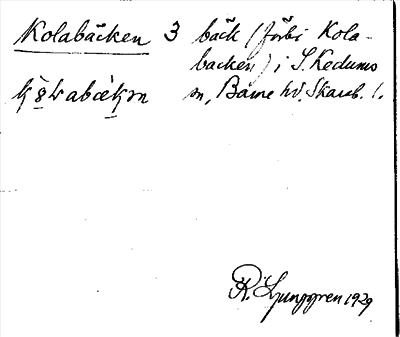 Kolabäcken 3 bäck (förbi Kola-
backen) i S. Kedums
sn, Barne hd, Skarab. l.
R. Ljunggren 1929